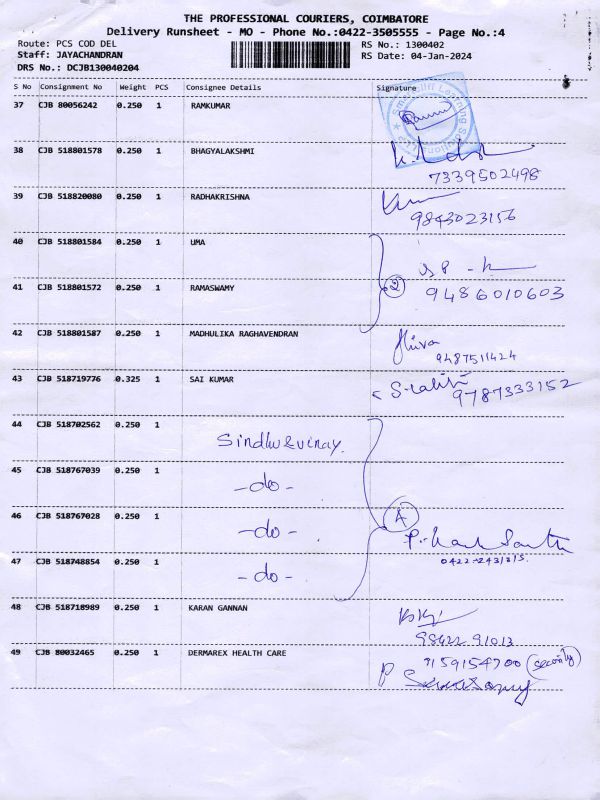 THE PROFESSIONAL COURIERS, COIMBATORE
Delivery Runsheet - MO - Phone No.:0422-3505555 - Page No.:4
Route: PCS COD DEL RS No.: 1300402
Staff: JAYACHANDRAN RS Date: 04-Jan-2024
DRS No.: DCJB130040204
S No Consignment No Weight PCS Consignee Details Signature
37 CJB 80056242 0.250 1 RAMKUMAR
38 CJB 518801578 0.250 1 BHAGYALAKSHMI
7339502498
39 CJB 518820080 0.250 1 RADHAKRISHNA
9843023156
40 CJB 518801584 0.250 1 UMA
41 CJB 518801572 0.250 1 RAMASWAMY 2 9486010603
42 CJB 518801587 0.250 1 MADHULIKA RAGHAVENDRAN Shiva
9487511424
43 CJB 518719776 0.325 1 SAI KUMAR
9787333152
44 CJB 518702562 0.250 1 Sindhu & vinay.
45 CJB 518767039 0.250 1 -do-
46 CJB 518767028 0.250 1 -do- 4
47 CJB 518748854 0.250 1 -do-
48 CJB 518718989 0.250 1 KARAN GANNAN
98422 91013
49 CJB 80032465 0.250 1 DERMAREX HEALTH CARE 7159154700 (security)